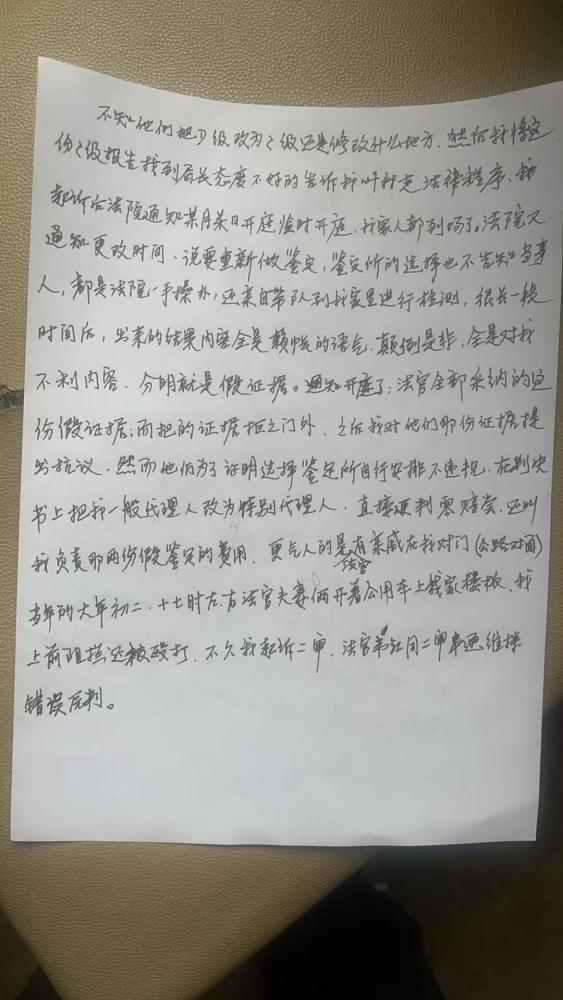 不知他们把D级改为C级还是修改什么地方、然后我将这
份C级报告找到局长态度不好的告诉我叫我走法律程序、我
起诉后法院通知某月某日开庭临时开庭、我家人都到场了。法院又
通知更改时间、说要重新做鉴定，鉴定所的选择也不告知当事
人，都是法院一手操办，还亲自带队到我家里进行检测，很长一段
时间后，出来的结果内容全是颠悖的语气、颠倒是非，全是对我
不利内容、分明就是假证据。通知开庭了；法官全部采纳的这
份假证据；而把的证据拒之门外、之后我对他们那份证据提
出抗议、然而他们为了证明选择鉴定所自行安排不违规、在判决
书上把我一般代理人改为特别代理人、直接硬判零赔尝、还叫
我负责那两份假鉴定的费用、更气人的是法官有亲戚在我对门(公路对面)
当年的大年初二、十七时左右法官夫妻俩开着公用车上我家楼板、我
上前阻拦还被殴打、不久我起诉二审，法官 同二审串通维持
错误原判。